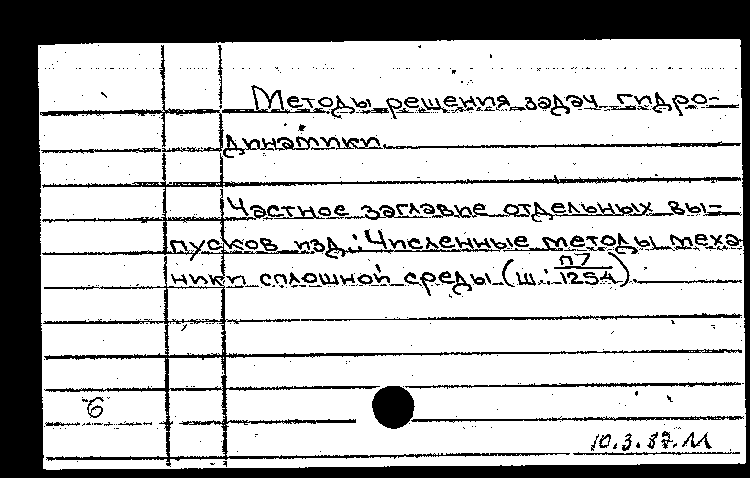 Методы решения задач гидро-
динамики.
Частное заглавие отдельных вы-
пусков изд.: Численные методы меха
ники сплошной среды (ш.: П7/1254).
6
10.3.87.М